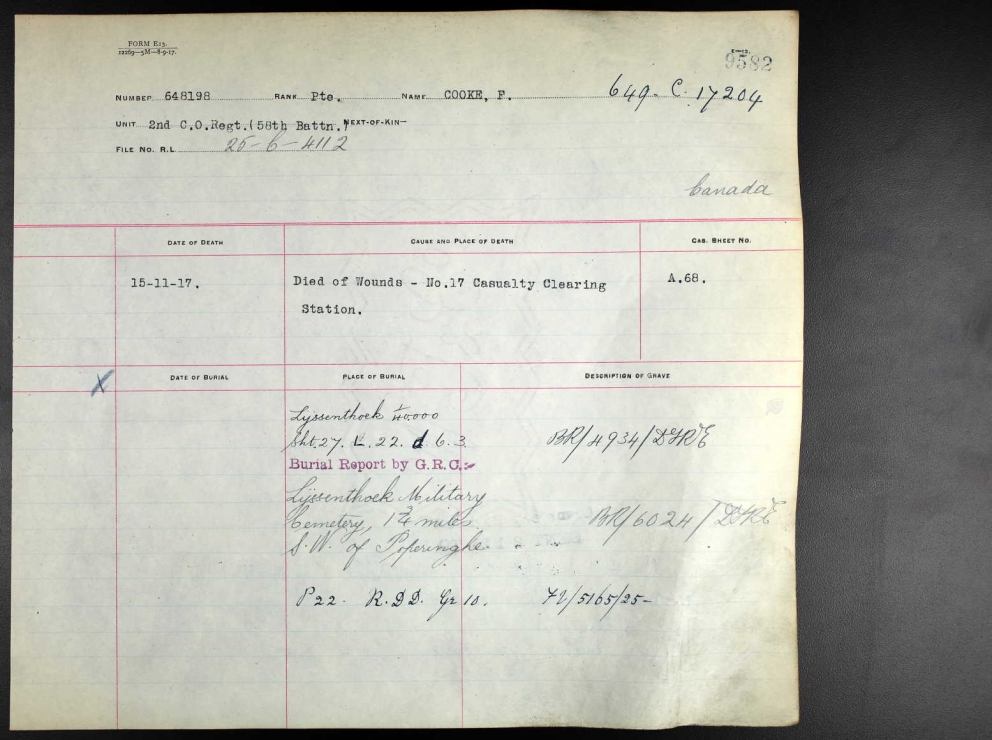 FORM E13.
12269—5M—8-9-17.
9582
NUMBER 648198 RANK Pte. NAME COOKE, F. 649-C.17204
UNIT 2nd C.O.Regt.(58th Battn.) NEXT-OF-KIN—
FILE NO. R.L. 25-6-4112
Canada
DATE OF DEATH CAUSE AND PLACE OF DEATH CAS. SHEET NO.
15-11-17. Died of Wounds - No.17 Casualty Clearing A.68.
Station.
X
DATE OF BURIAL PLACE OF BURIAL DESCRIPTION OF GRAVE
Lyssenthoek 1/40.000
Sht.27. L.22.d.6.3. BR/4934/DGRE
Burial Report by G.R.C.:-
Lijssenthoek Military
Cemetery, 1¾ miles BR/6024/DGRE
S.W. of Poperinghe
P22. R.DD. Gr 10. 72/5165/25-